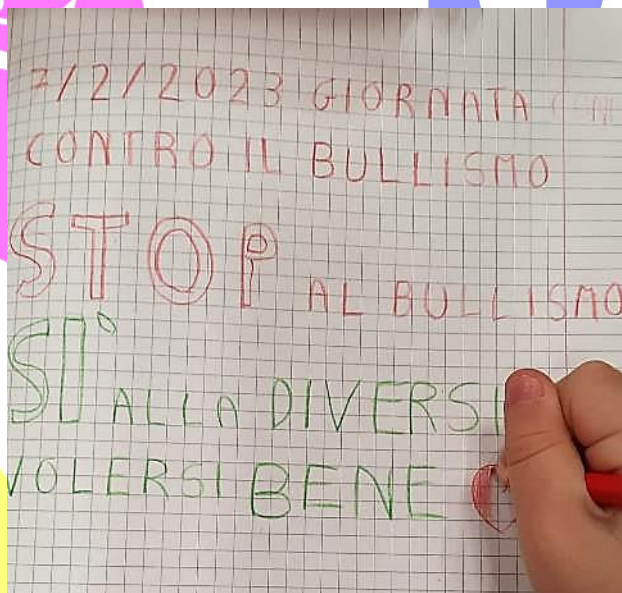 7/2/2023 GIORNATA
CONTRO IL BULLISMO
STOP AL BULLISMO
SÌ ALLA DIVERSI
VOLERSI BENE